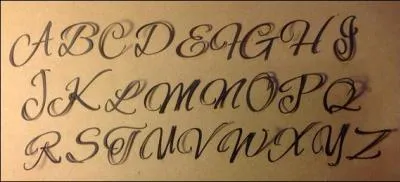 ABCDEFGHI
JKLMNOPQ
RSTUVWXYZ